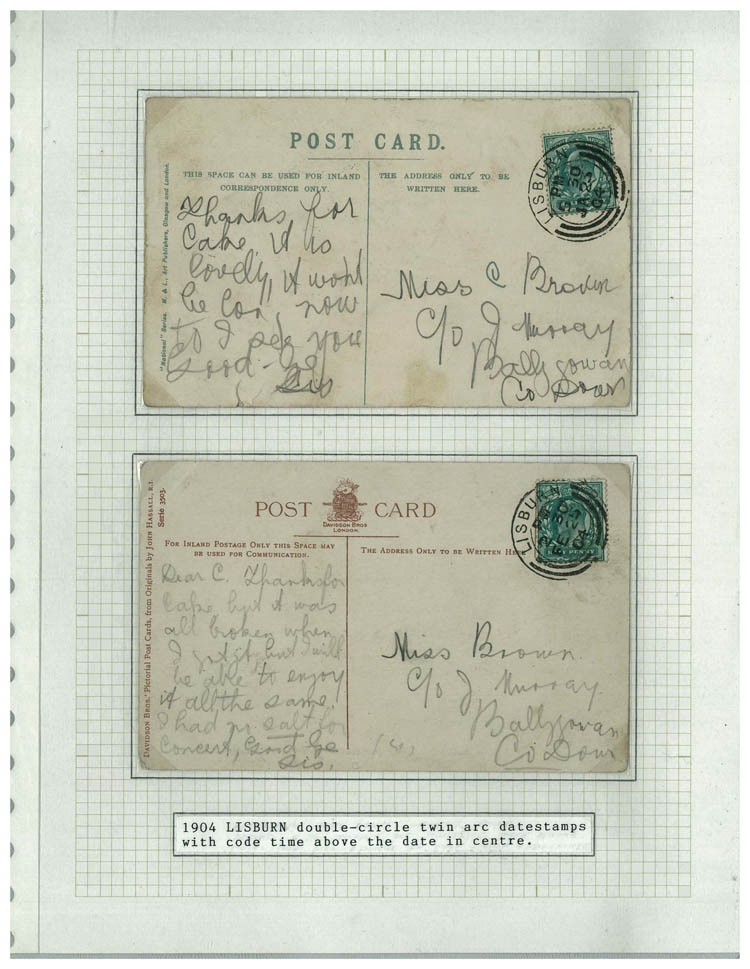 POST CARD.
THIS SPACE CAN BE USED FOR INLAND
CORRESPONDENCE ONLY.
THE ADDRESS ONLY TO BE
WRITTEN HERE.
"National" Series. M. & L., Art Publishers, Glasgow and London.
LISBURN
PM
5 30
JA 22
04
Thanks, for
Cake, it is
lovely, it wont
be lon, now
to I see you
Good-be
Sis
Miss C Brown
C/o J Murray
Ballygowan
Co Down
POST CARD
DAVIDSON BROS
LONDON.
FOR INLAND POSTAGE ONLY THIS SPACE MAY
BE USED FOR COMMUNICATION.
THE ADDRESS ONLY TO BE WRITTEN HERE
DAVIDSON BROS.' Pictorial Post Cards, from Originals by JOHN HASSALL, R.I.
Serie 3503.
LISBURN
PM
FE
04
PENNY
Dear C. Thanks for
Cake but it was
all broken when
I got it, but I will
be able to enjoy
it all the same.
I had no salt for
Concert, Good be
Sis.
Miss Brown
C/o J Murray
Ballygowan
Co Down
1904 LISBURN double-circle twin arc datestamps
with code time above the date in centre.